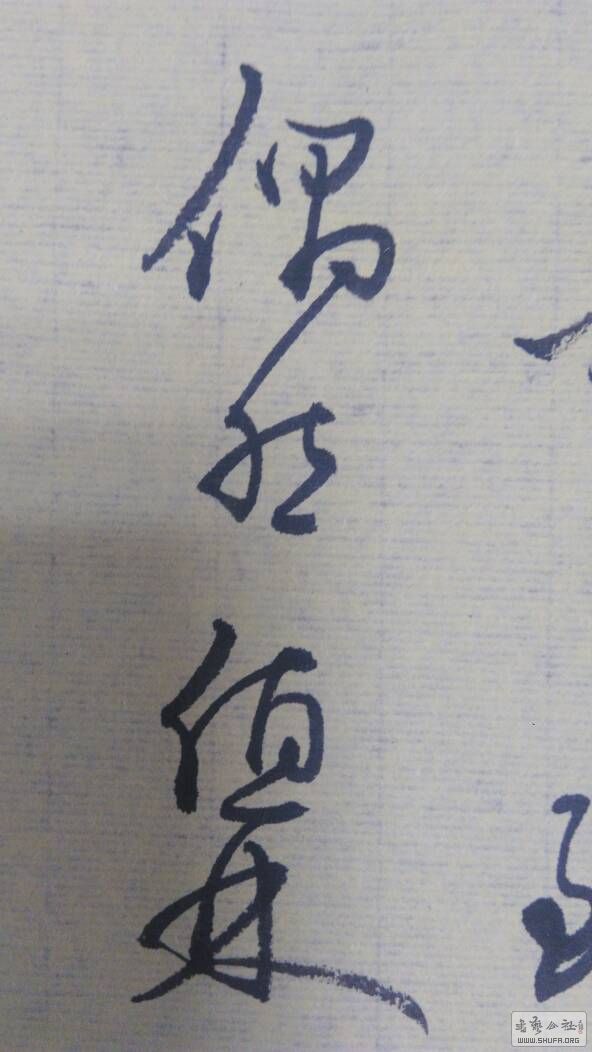 偶然值林
書藝公社
WWW.SHUFA.ORG